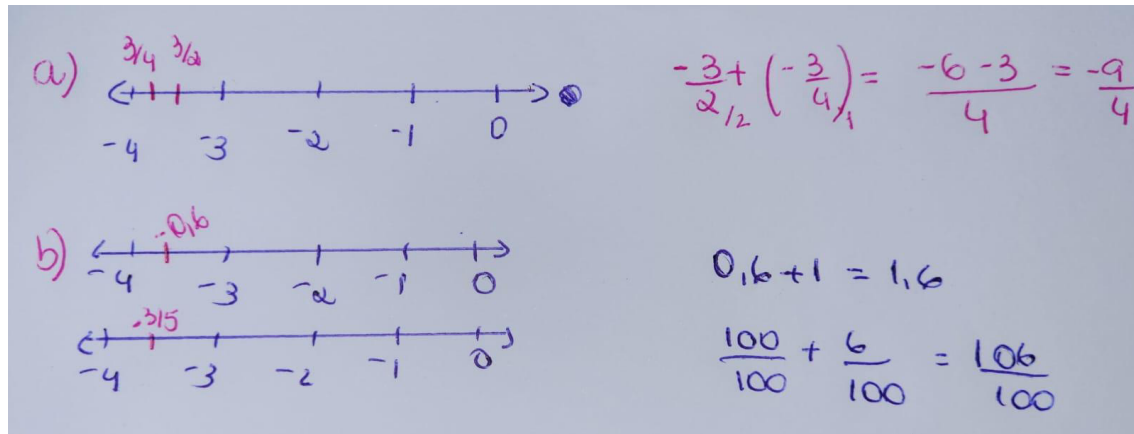 a) 3/4 3/2
-4 -3 -2 -1 0
-3/2 /2 + (-3/4) /1 = -6 -3/4 = -9/4
b) -0,6
-4 -3 -2 -1 0
0,6 + 1 = 1,6
-3/5
-4 -3 -2 -1 0
100/100 + 6/100 = 106/100